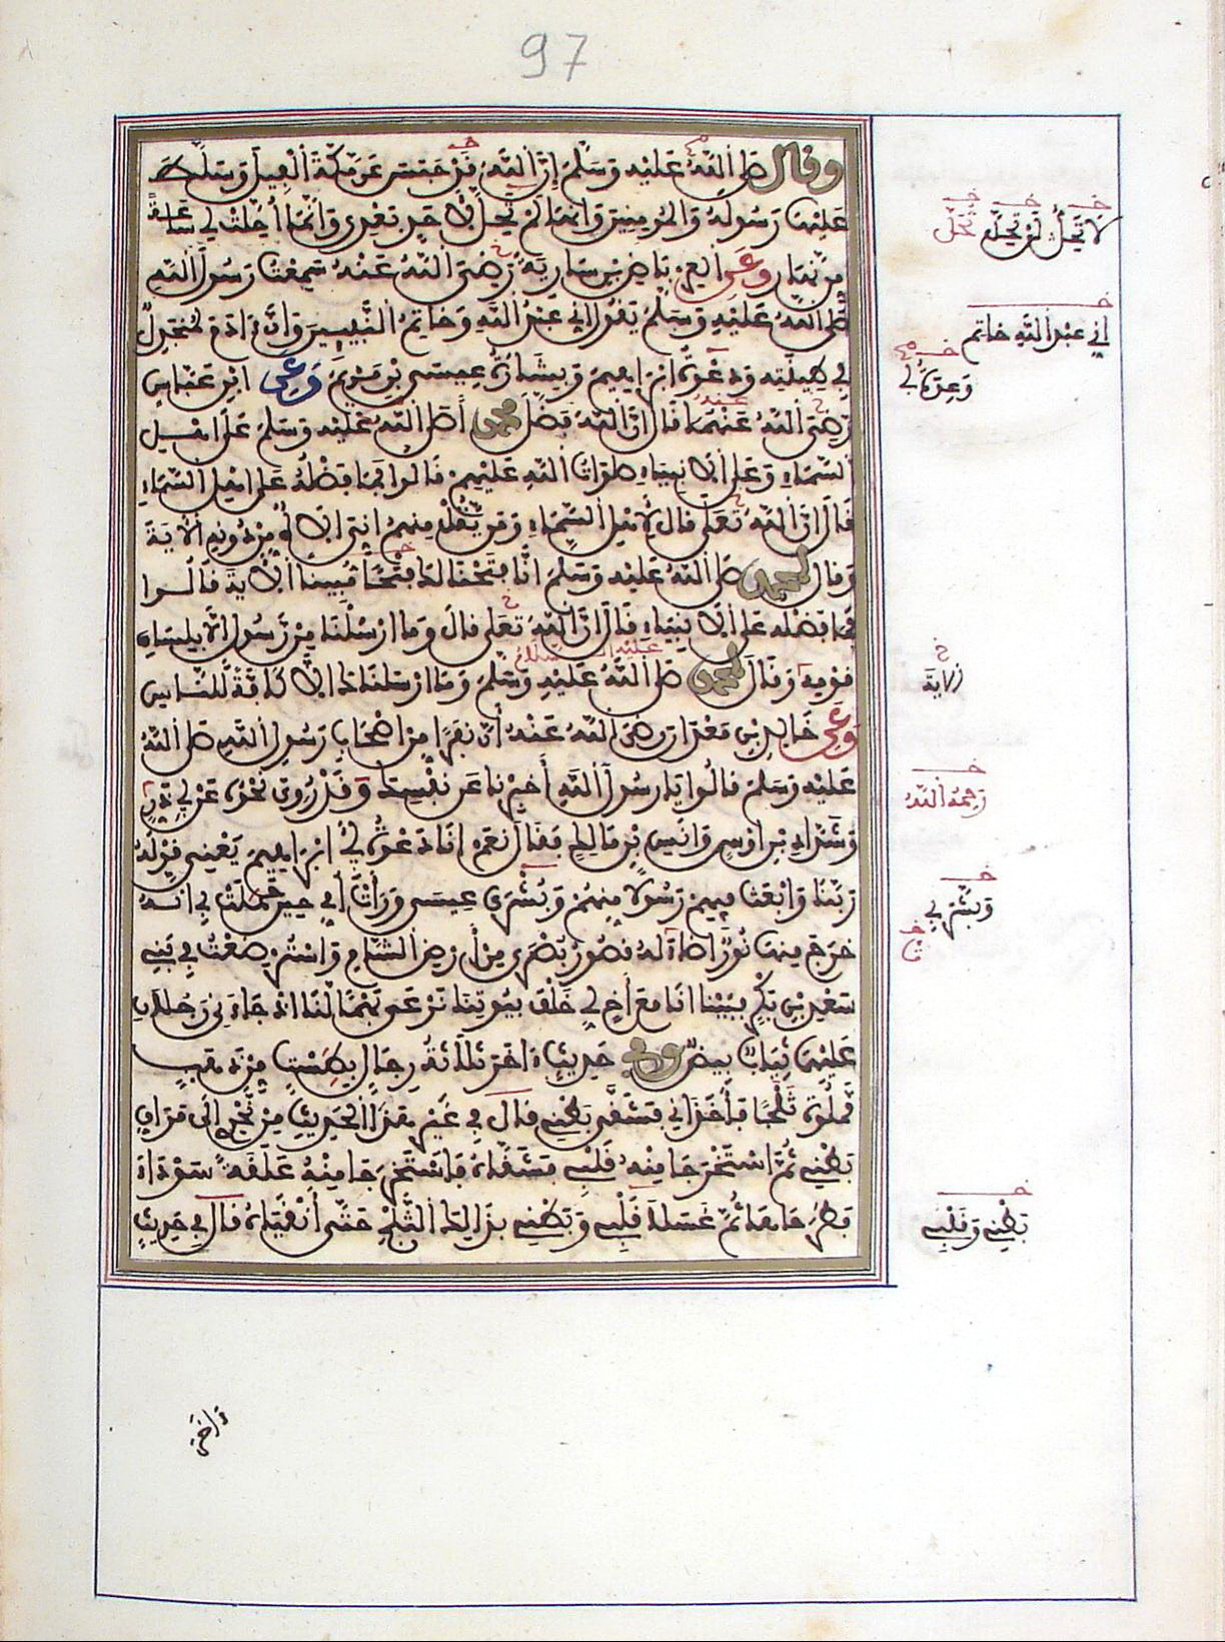 97
وقال صلى الله عليه وسلم إن الله قد حبس عن مكة الفيل وسلط
عليها رسوله والمومنين وانها لن تحل لأحد بعدي وانما أحلت لي ساعة
من نهار وعن العرباض بن سارية رضي الله عنه سمعت رسول الله
صلى الله عليه وسلم يقول إني عبد الله وخاتم النبيين وان ادم لمنجدل
في طينته ودعوة ابراهيم وبشارة عيسى بن مريم وعن ابن عباس
رضي الله عنهما قال إن الله فضل محمدا صلى الله عليه وسلم على اهل
السماء وعلى الانبياء صلوات الله عليهم قالوا فما فضله على اهل السماء
قال إن الله تعلى قال لأهل السماء ومن يقل منهم إني إلاه من دونه الآية
وقال لمحمد صلى الله عليه وسلم إنا فتحنا لك فتحا مبينا الآية قالوا
فما فضله على الانبياء قال إن الله تعلى قال وما ارسلنا من رسول إلا بلسان
قومه وقال لمحمد صلى الله عليه وسلم وما ارسلناك إلا كافة للناس
وعن خالد بن معدان رضي الله عنه أن نفرا من اصحاب رسول الله صلى الله
عليه وسلم قالوا يا رسول الله أخبرنا عن نفسك وقد روي نحوه عن أبي ذر
وشداد بن اوس وانس بن مالك فقال نعم انا دعوة أبي ابراهيم يعني قوله
ربنا وابعث فيهم رسولا منهم وبشرى عيسى ورأت أمي حين حملت بي انه
خرج منها نور اضاء له قصور بصرى من أرض الشام واسترضعت في بني
سعد بن بكر فبينا انا مع أخ لي خلف بيوتنا نرعى بهما لنا اذ جاءني رجلان
عليهما ثياب بيض وفي حديث اخر ثلاثة رجال بطست من ذهب
مملوة ثلجا فأخذاني فشقا بطني قال في غير هذا الحديث من نحري إلى مراق
بطني ثم استخرجا منه قلبي فشقاه فاستخرجا منه علقة سوداء
فطرحاها ثم غسلا قلبي وبطني بذلك الثلج حتى أنقياه قال في حديث
لا تحل لن تحل تحل
إني عبد الله خاتم
وعدة أبي
الاية
رحمه الله
وبشر بي
بطني وقلبي
واخر